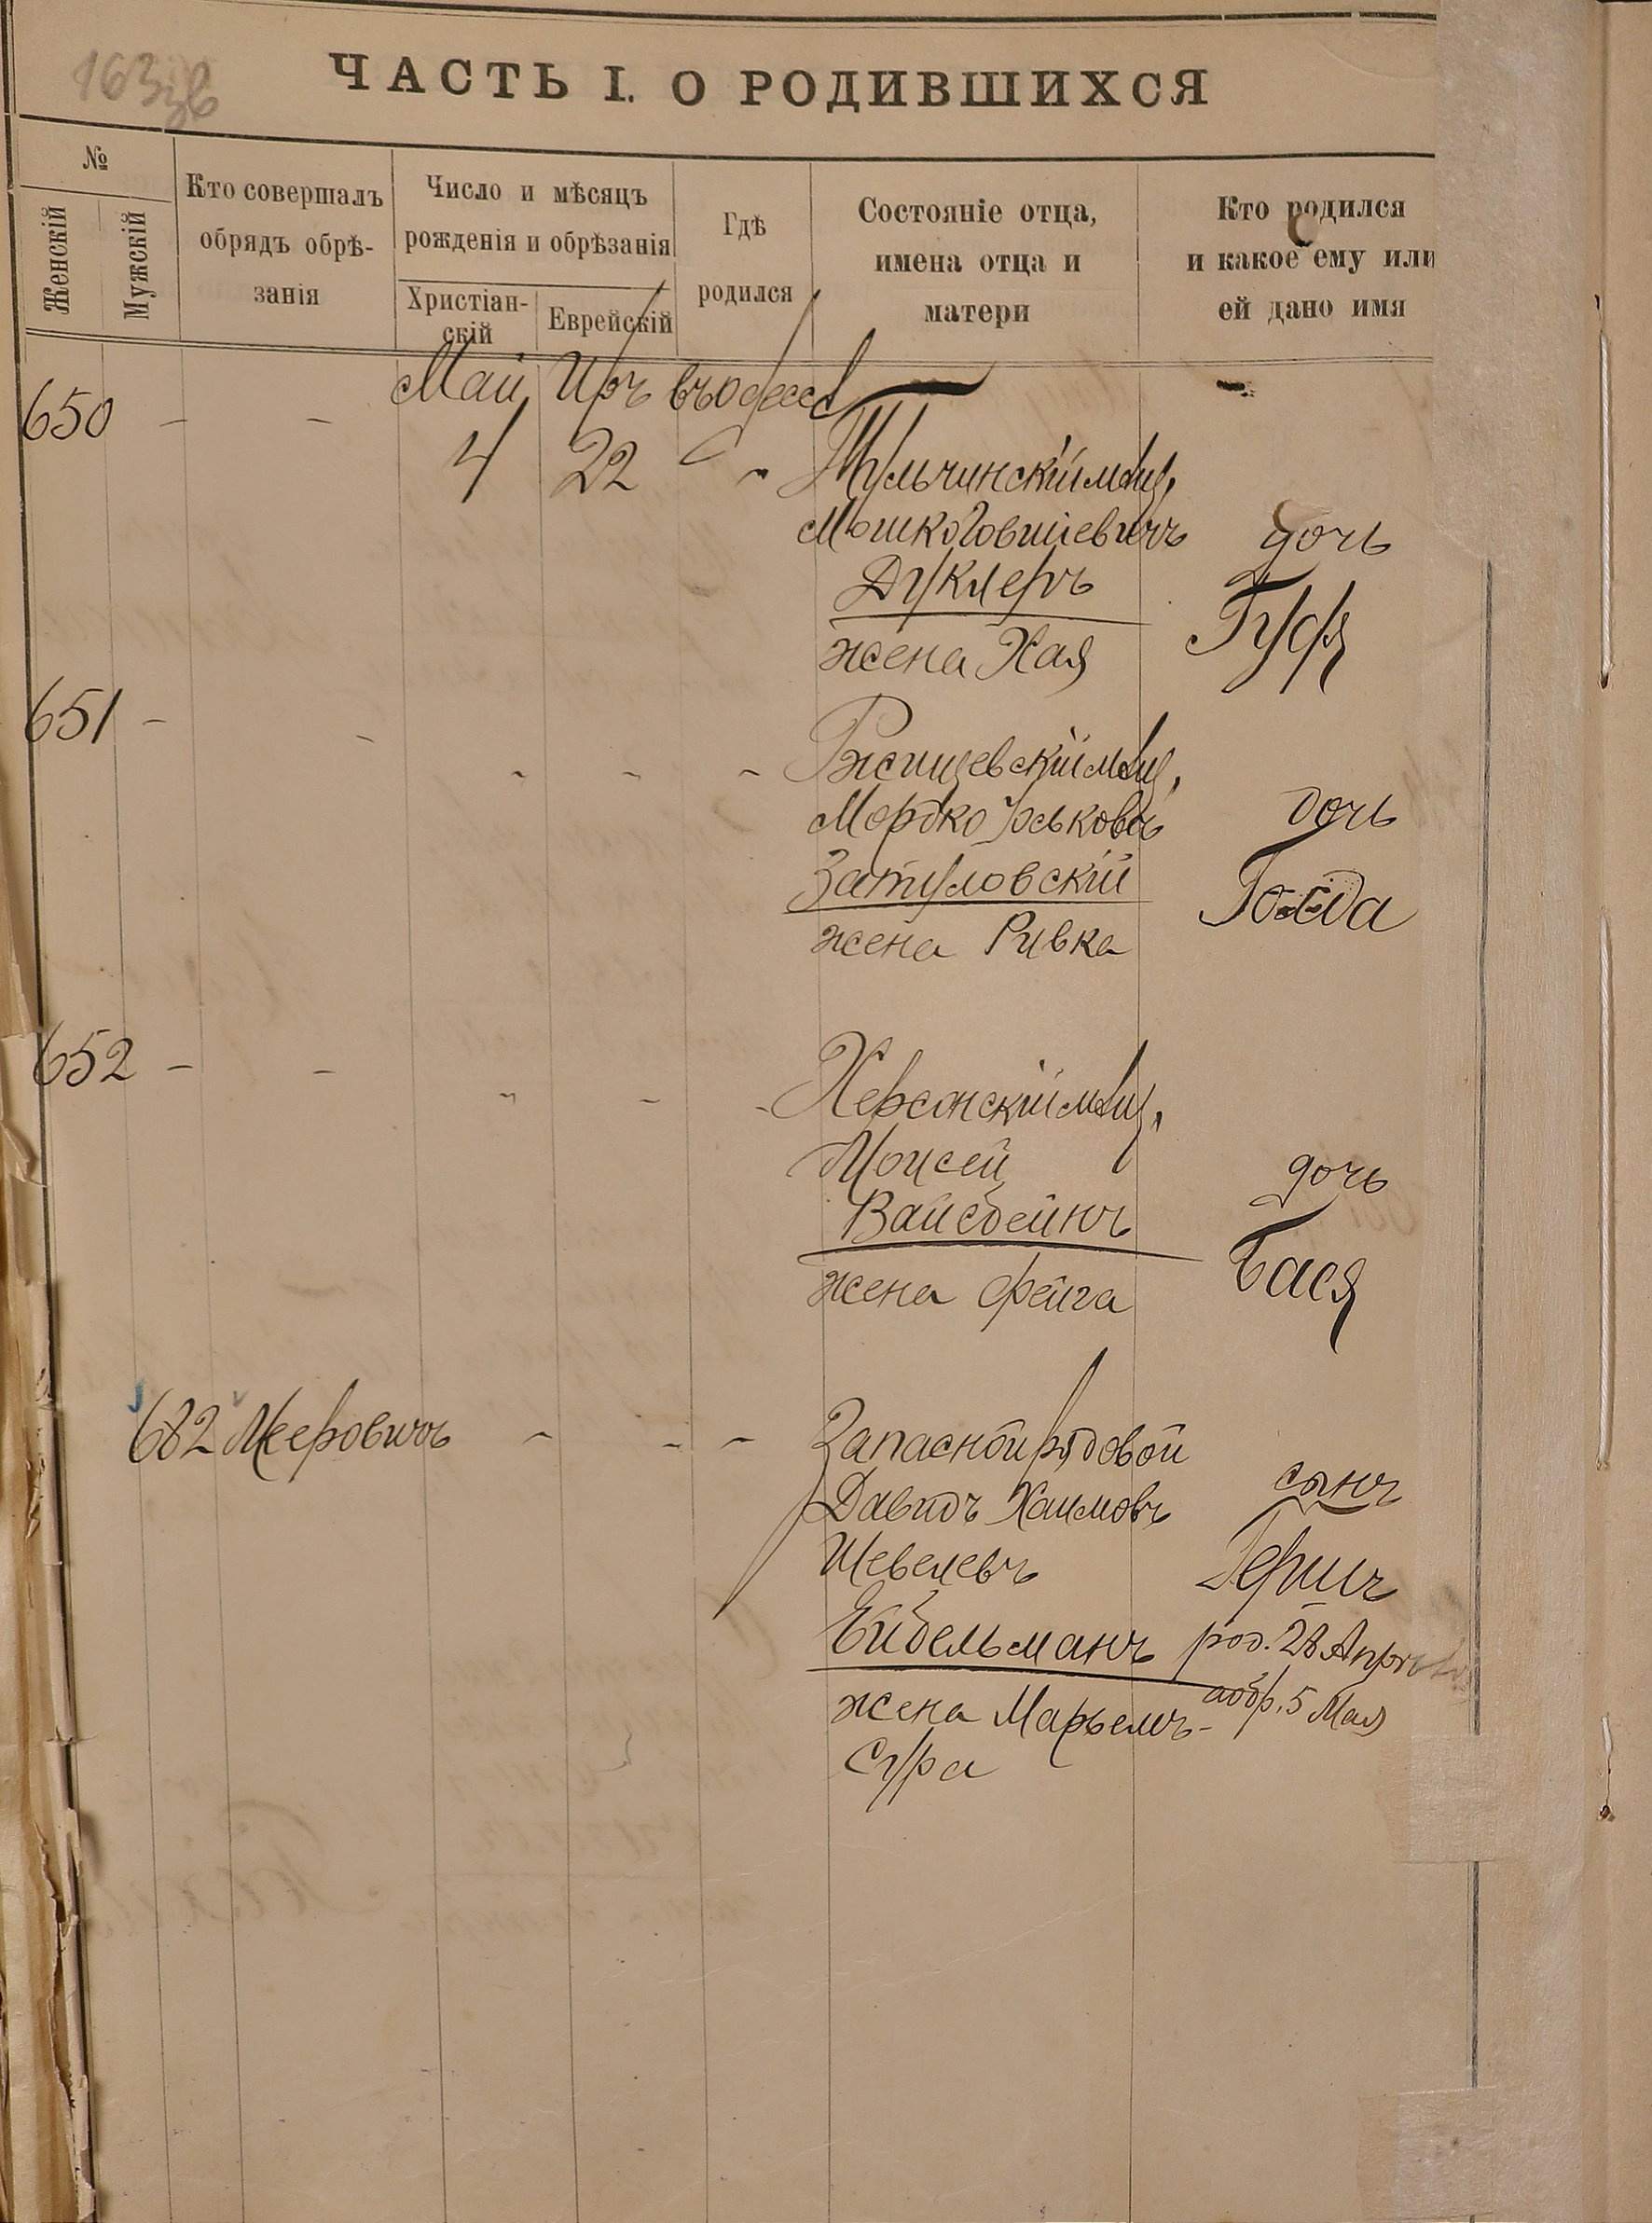 163зв
ЧАСТЬ I. О РОДИВШИХСЯ
№
Женскій
Мужскій
Кто совершалъ
обрядъ обрѣ-
занія
Число и мѣсяцъ
рожденія и обрѣзанія
Христіан-
скій
Еврейскій
Гдѣ
родился
Состояніе отца,
имена отца и
матери
Кто родился
и какое ему или
ей дано имя
Май Іяръ въ Одессѣ
650 - - 4 22 "
Тульчинскій мѣщ.
Мошко Іовшіевичъ
Дуклеръ
жена Хая
дочь
Руфя
651 - - - - -
Ржищевскій мѣщ.
Мордко Юськовъ
Затуловскій
жена Ривка
дочь
652 - - - - -
Херсонскій мѣщ.
Моисей
Вайсбейнъ
жена Фейга
дочь
Бася
682 Мееровичъ - - -
Запасной рядовой
Давидъ Хаимовъ
Шевелевъ
Ейдельманъ
жена Марьемъ-
Сура
сынъ
Гершъ
род. 28 Апрѣля
а обр. 5 Мая